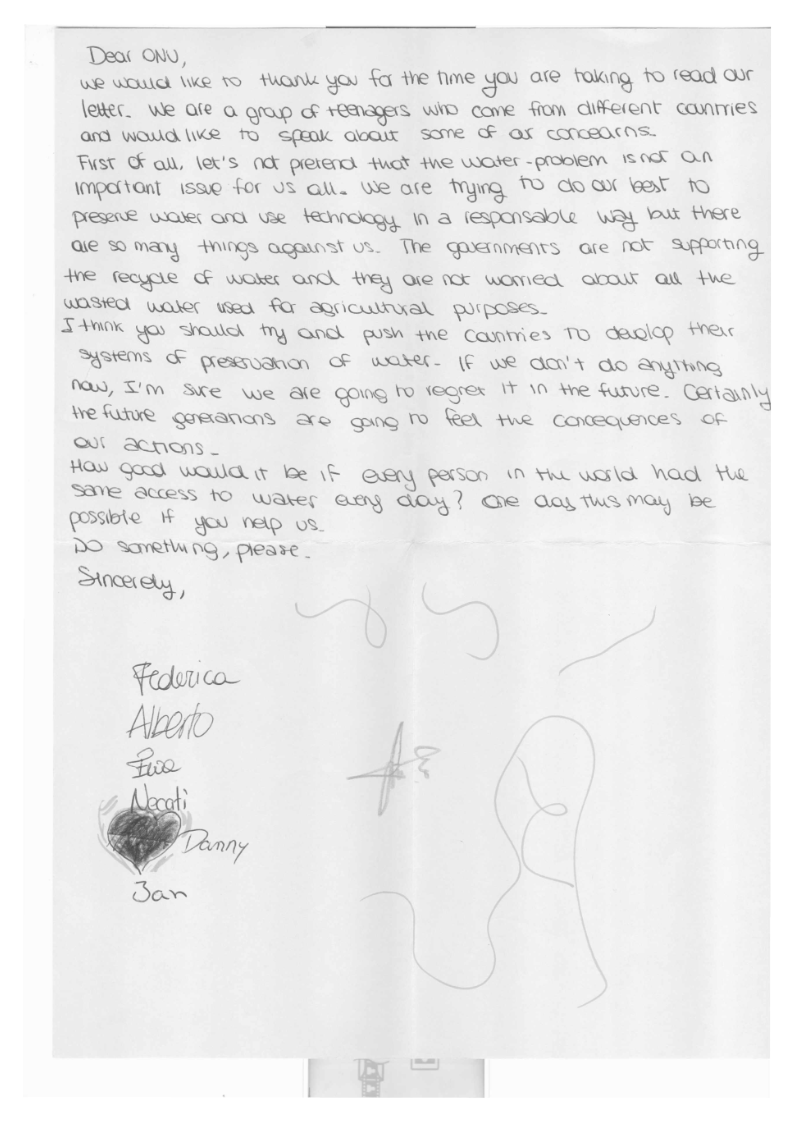 Dear ONU,
we would like to thank you for the time you are taking to read our
letter. We are a group of teenagers who come from different countries
and would like to speak about some of our concearns.
First of all, let's not pretend that the water-problem is not an
important issue for us all. We are trying to do our best to
preserve water and use technology in a responsable way but there
are so many things against us. The governments are not supporting
the recycle of water and they are not worried about all the
wasted water used for agricultural purposes.
I think you should try and push the countries to develop their
systems of preservation of water. If we don't do anything
now, I'm sure we are going to regret it in the future. Certainly
the future generations are going to feel the concequences of
our actions.
How good would it be if every person in the world had the
same access to water every day? One day this may be
possible if you help us.
Do something, please.
Sincerely,
Federica
Alberto
Necati
Danny